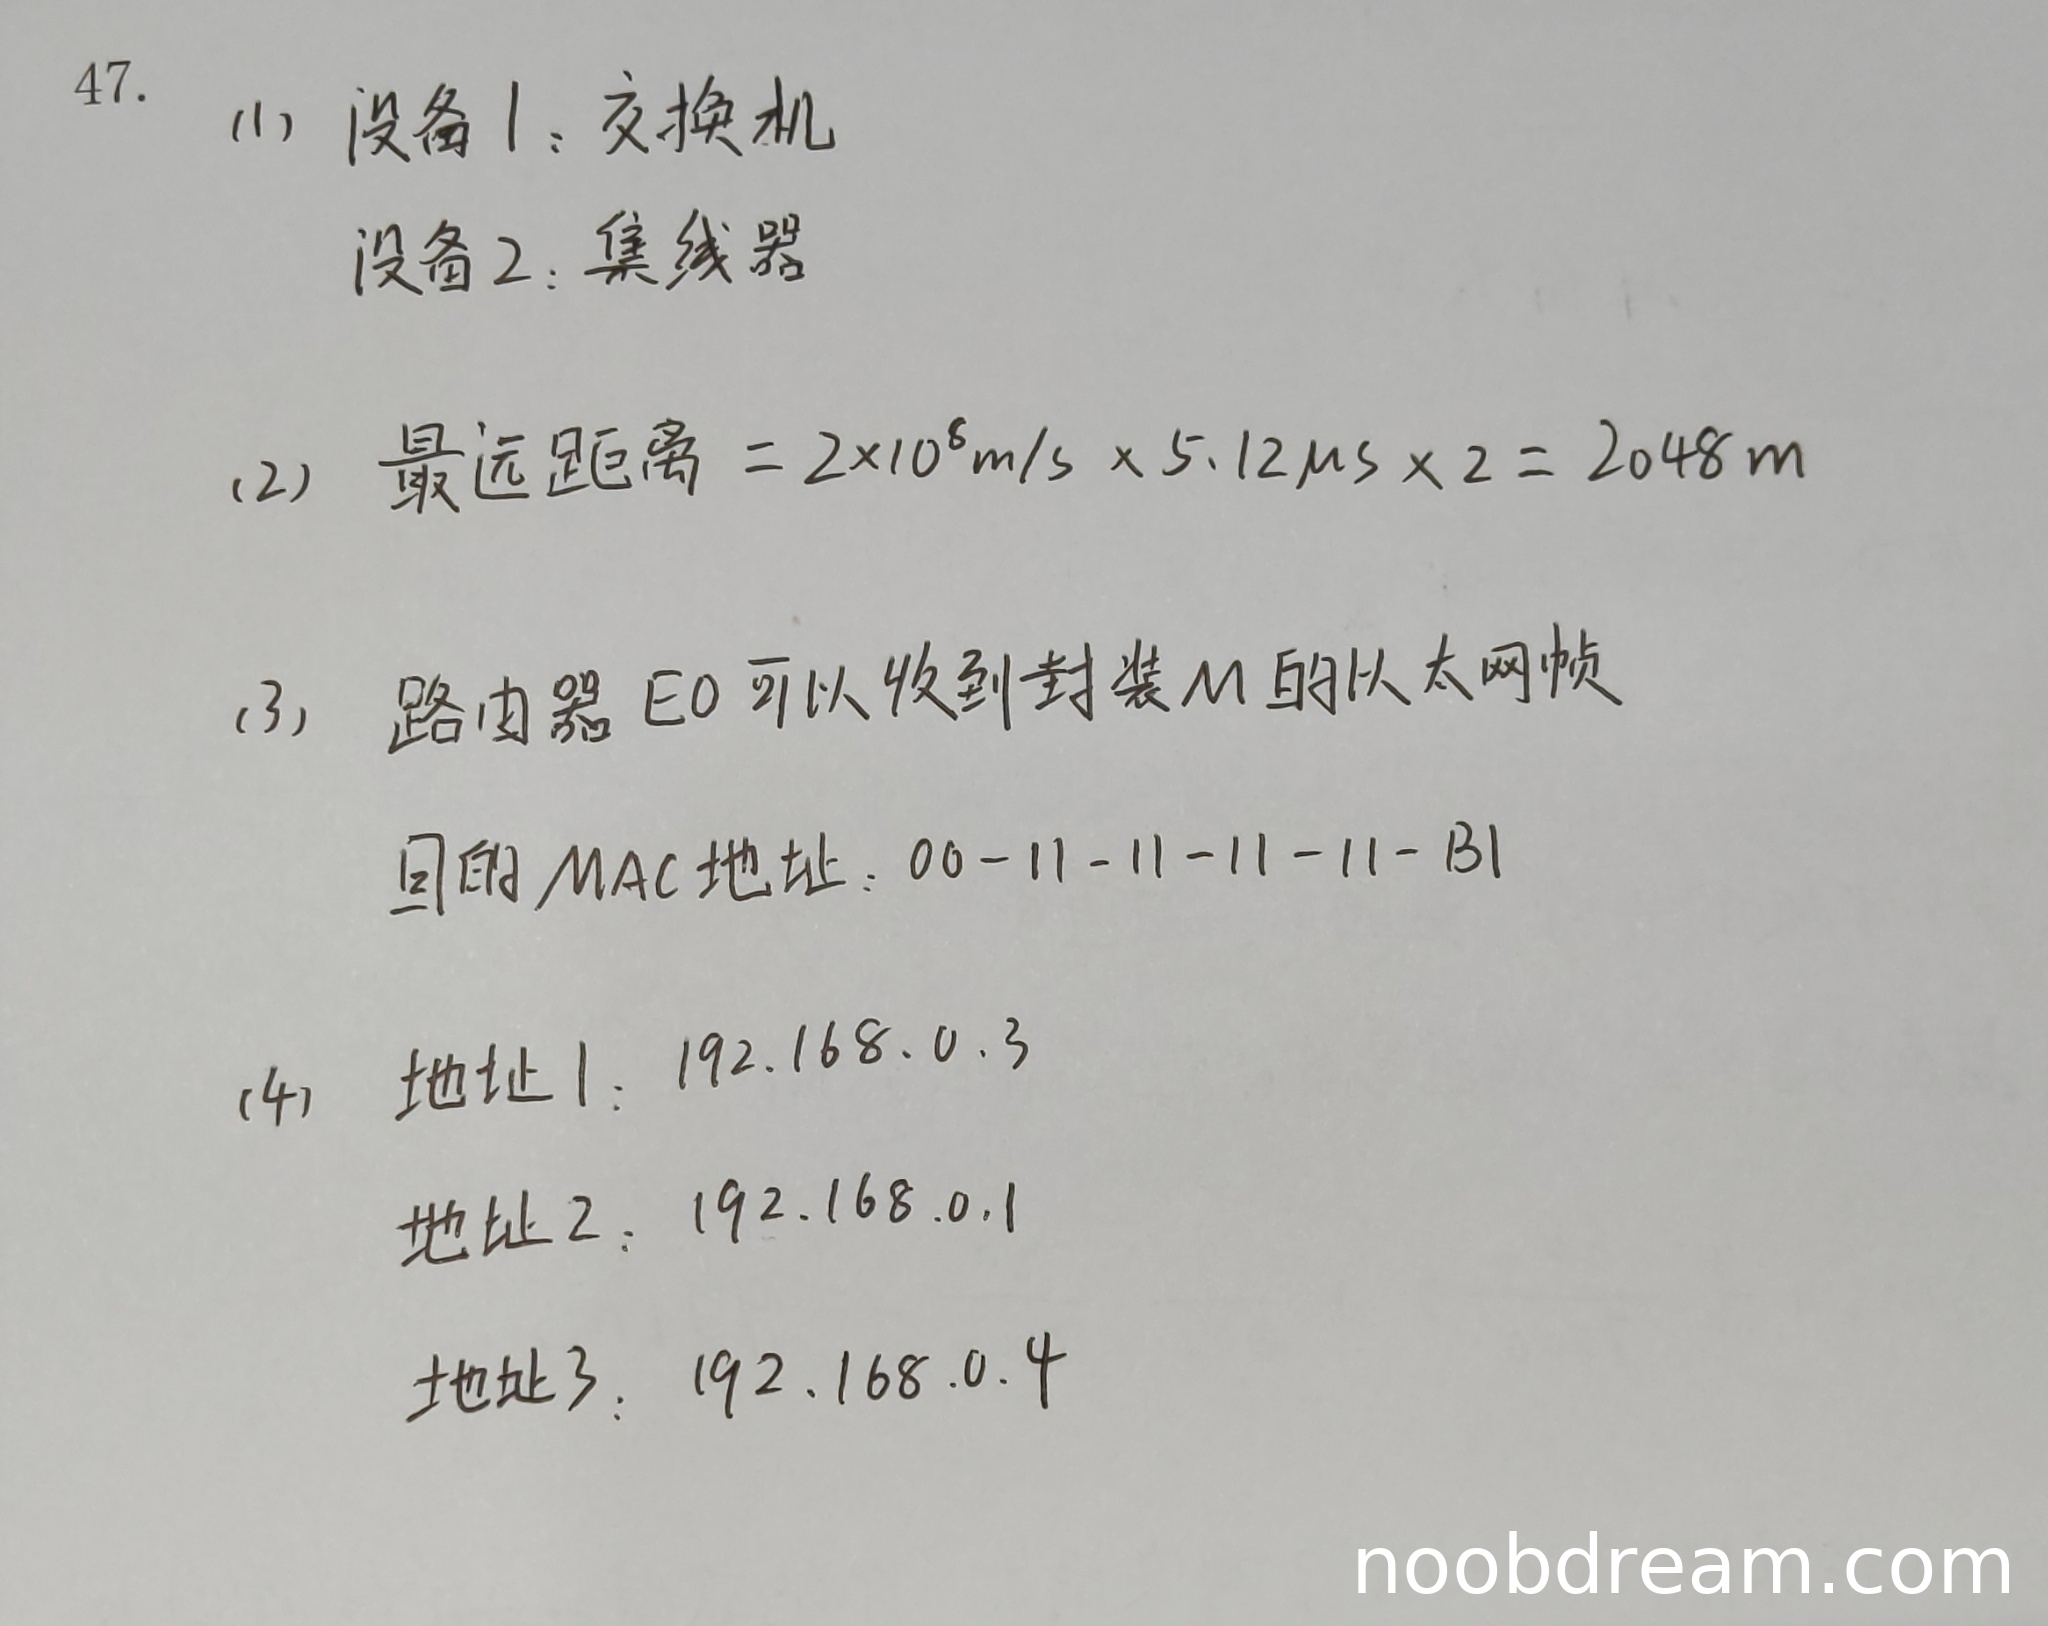 47.
(1) 设备1:交换机
设备2:集线器
(2) 最远距离 = 2×10⁸m/s × 5.12μs × 2 = 2048m
(3) 路由器 E0 可以收到封装M的以太网帧
目的MAC地址:00-11-11-11-11-B1
(4) 地址1: 192.168.0.3
地址2: 192.168.0.1
地址3: 192.168.0.4
noobdream.com